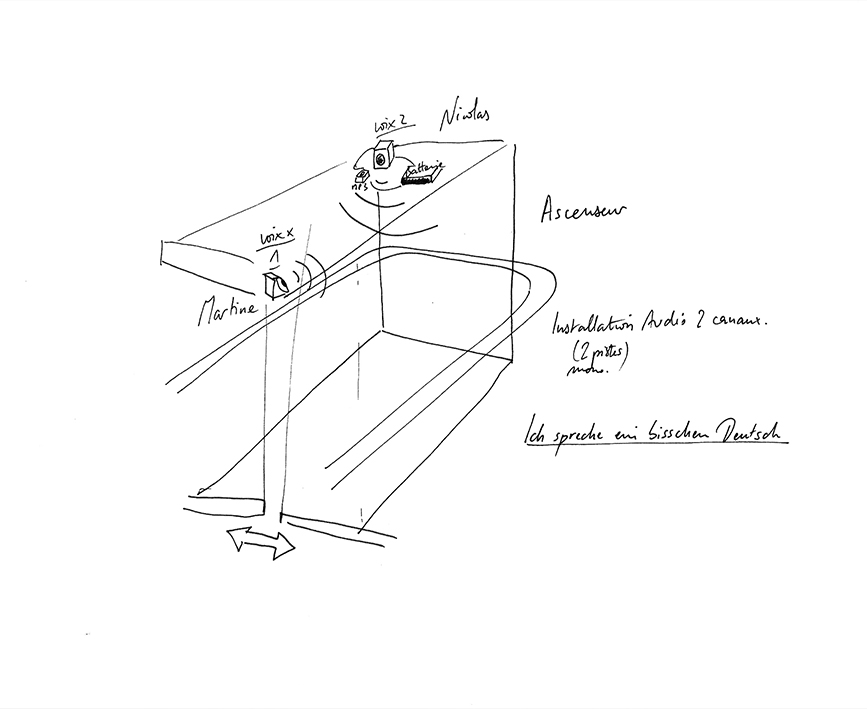 Nicolas
voix 2
batterie
mp3
Ascenseur
voix x
1
Martine
Installation Audio 2 canaux.
(2 pistes)
mono.
Ich spreche ein bisschen Deutsch